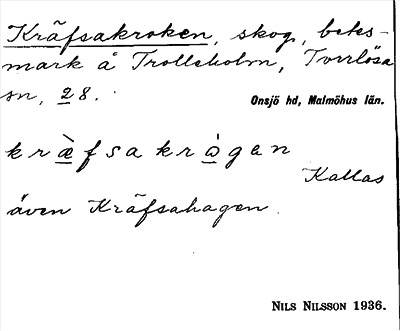 Kräfsakroken, skog, betes-
mark å Trolleholm, Torrlösa
sn, 28.
Onsjö hd, Malmöhus län.
kræ̀fsakrògen
Kallas
även Kräfsahagen.
NILS NILSSON 1936.